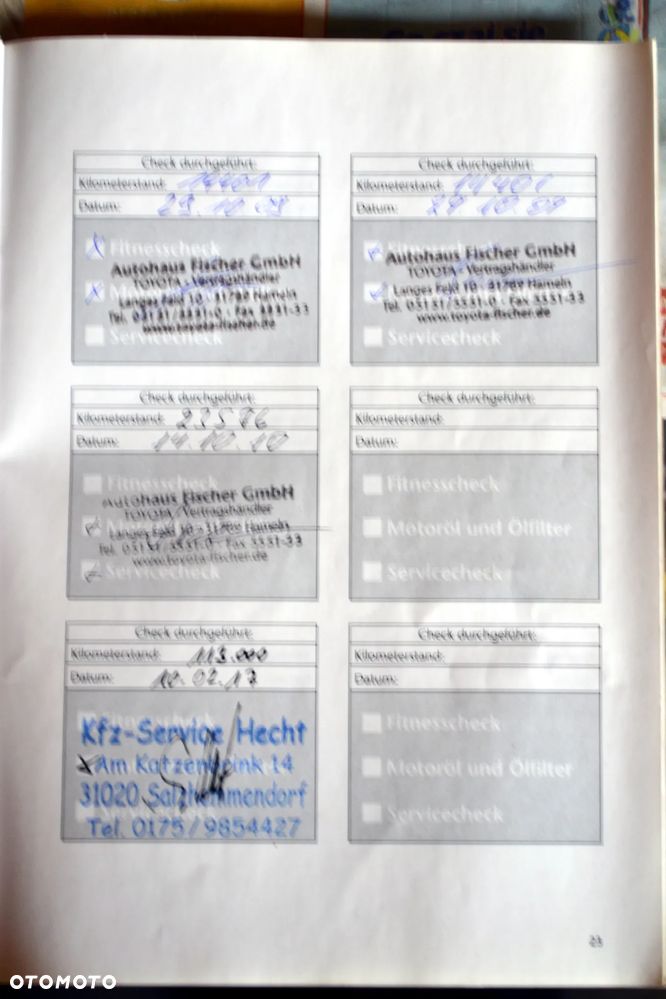 Check durchgeführt:
Kilometerstand: 14401
Datum: 29.10.09
Fitnesscheck
Autohaus Fischer GmbH
TOYOTA - Vertragshändler
Langes Feld 10 - 31789 Hameln
Tel. 05151/5551-0 - Fax 5551-33
www.toyota-fischer.de
Servicecheck
Check durchgeführt:
Kilometerstand: 14401
Datum:
Autohaus Fischer GmbH
TOYOTA - Vertragshändler
Langes Feld 10 - 31789 Hameln
Tel. 05151/5551-0 - Fax 5551-33
www.toyota-fischer.de
Servicecheck
Check durchgeführt:
Kilometerstand: 23576
Datum: 14.10.10
Fitnesscheck
Autohaus Fischer GmbH
TOYOTA - Vertragshändler
Langes Feld 10 - 31789 Hameln
Tel. 05151/5551-0 - Fax 5551-33
www.toyota-fischer.de
Servicecheck
Check durchgeführt:
Kilometerstand:
Datum:
Fitnesscheck
Motoröl und Ölfilter
Servicecheck
Check durchgeführt:
Kilometerstand: 113.000
Datum: 10.02.17
Kfz-Service Hecht
Am Katzenspink 14
31020 Salzhemmendorf
Tel. 0175/9854427
Check durchgeführt:
Kilometerstand:
Datum:
Fitnesscheck
Motoröl und Ölfilter
Servicecheck
23
OTOMOTO